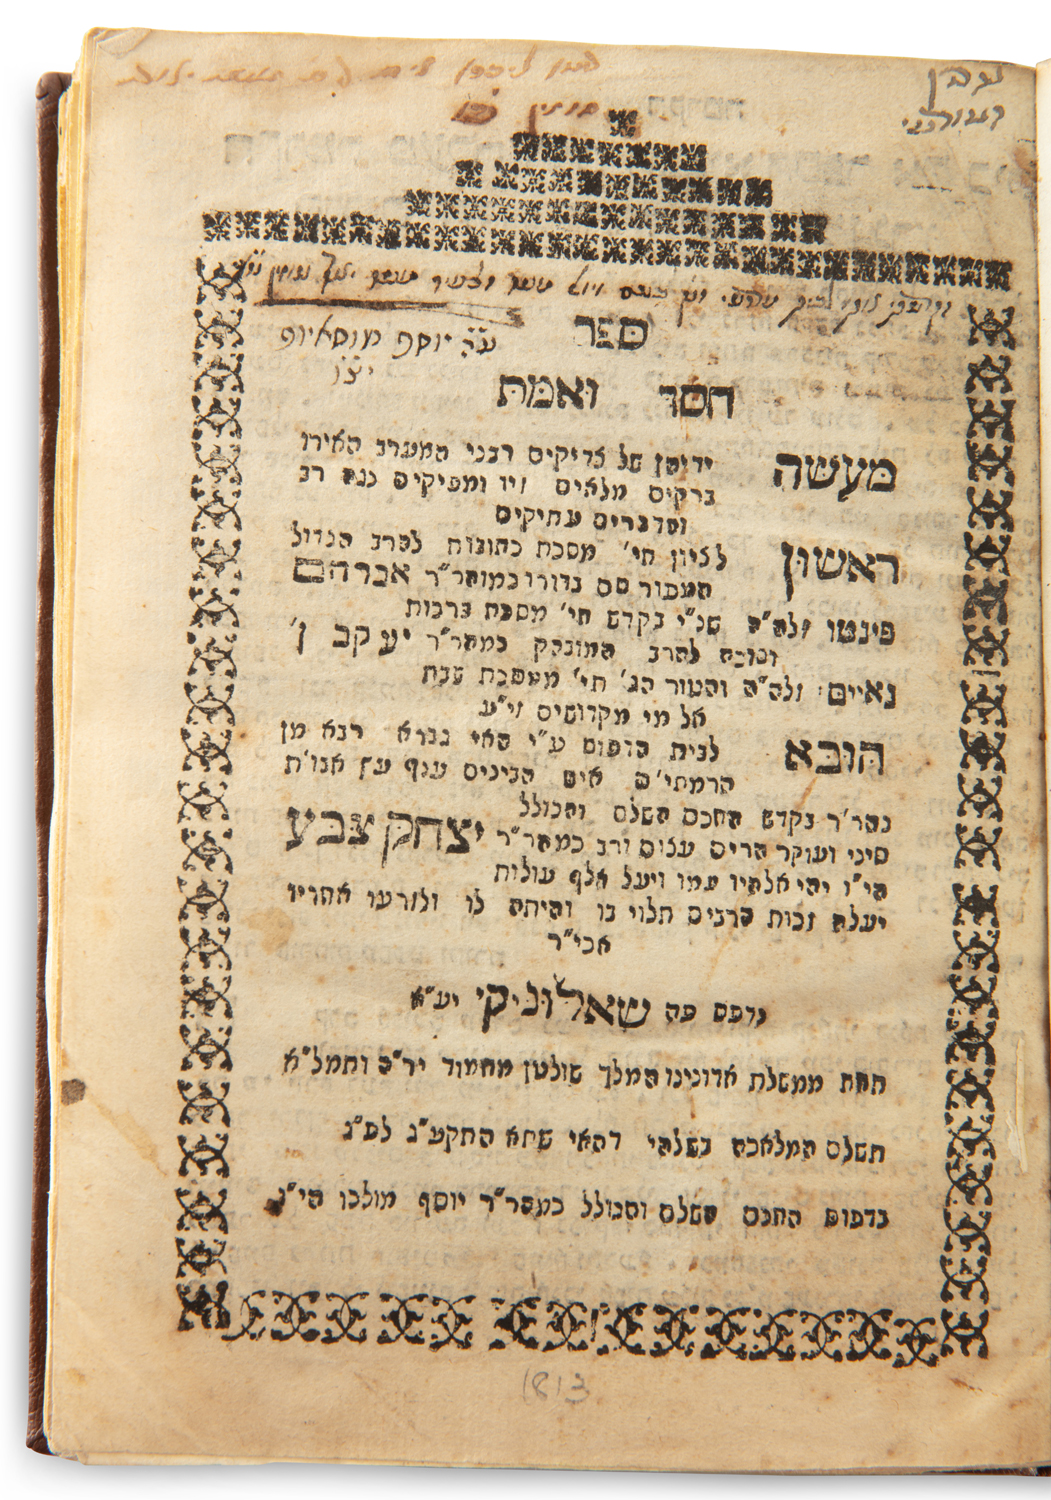 ספר
ע״ה יוסף מוסאיוף
יצ״ו
חסד ואמת
מעשה ידיהן של צדיקים רבני המערב האירו
ברקים מלאים זיו ומפיקים נגה רב
והדברים עתיקים
ראשון לציון חי׳ מסכת כתובות להרב הגדול
המפור סם בדורו כמוהר״ר אברהם
פינטו זלה״ה שנ״י בקדש חי׳ מסכת ברכות
וסוכה להרב המובהק כמהר״ר יעקב ן׳
נאיים זלה״ה והטור הג׳ חי׳ ממסכת שבת
אל מי מקדושים זי״ע
הובא לבית הדפוס ע״י האי גברא רבא מן
הרמתי״ם איש הבינים ענף עץ אבו׳ת
נהר׳ר בקדש החכם השלם והכולל
סיני ועוקר הרים עצום ורב כמהר״ר יצחק צבע
הי״ו יהי אלהיו עמו ויעל אלף עולות
יעלה זכות הרבים תלוי בו והיתה לו ולזרעו אחריו
אכי״ר
נדפס פה שאלוניקי יע״א
תחת ממשלת אדונינו המלך שולטן מחמוד יר״ה ותמל״א
תשלם המלאכה בשלהי דהאי שתא התקע״ג לפ״ג
בדפוס החכם השלם והכולל כמהר״ר יוסף מולכו הי״ו
1813